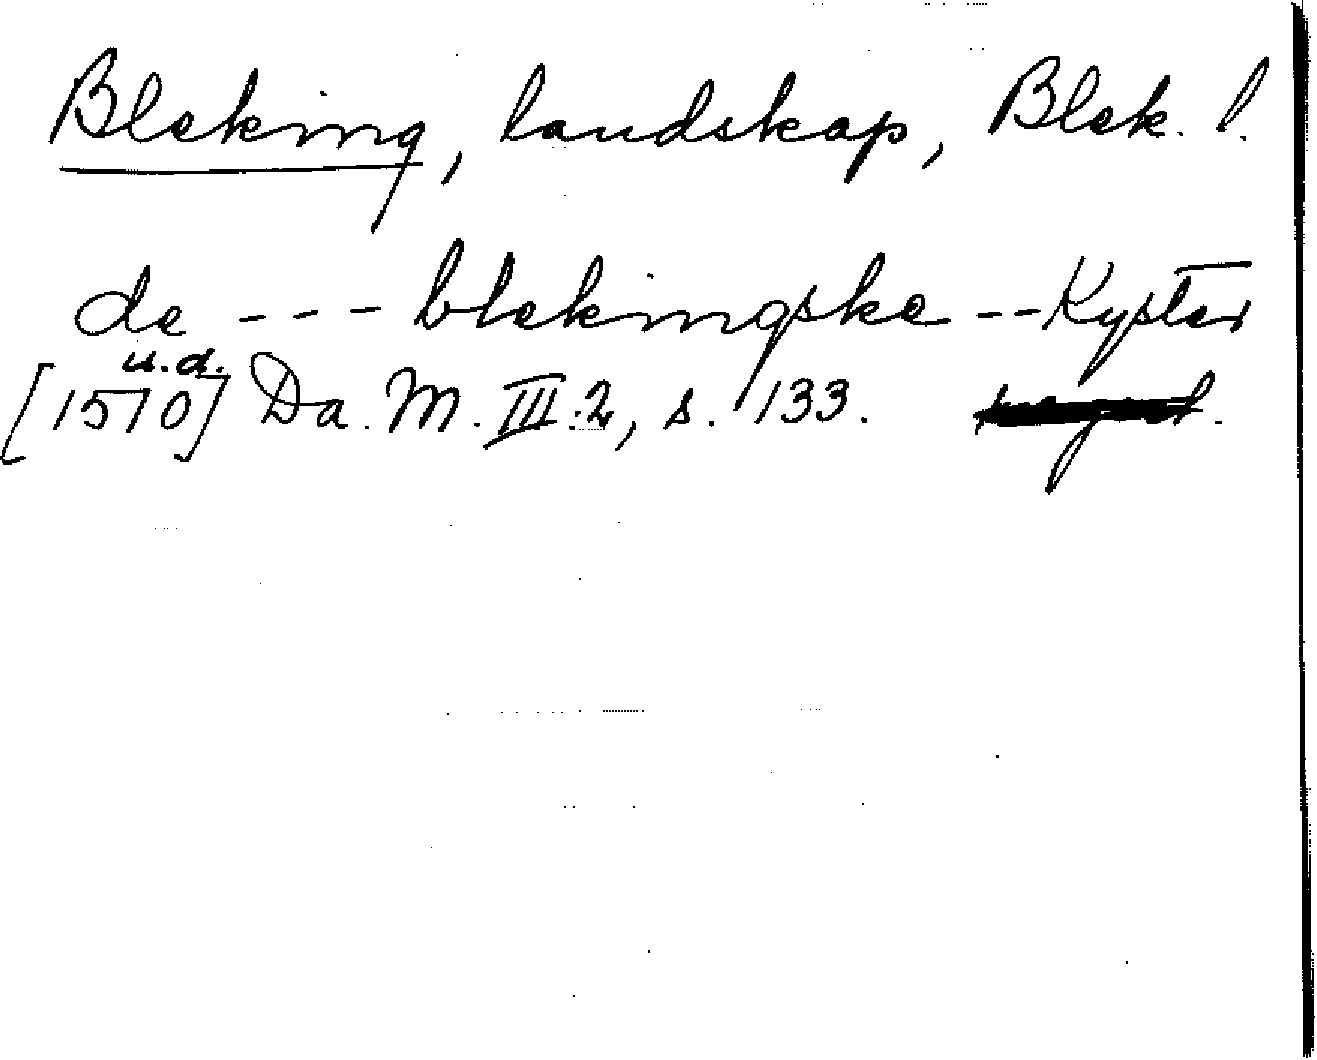 Bleking, landskap, Blek. l.
de --- blekingske -- Kyster
u.d.
[1570] Da. M. III:2, s. 133.